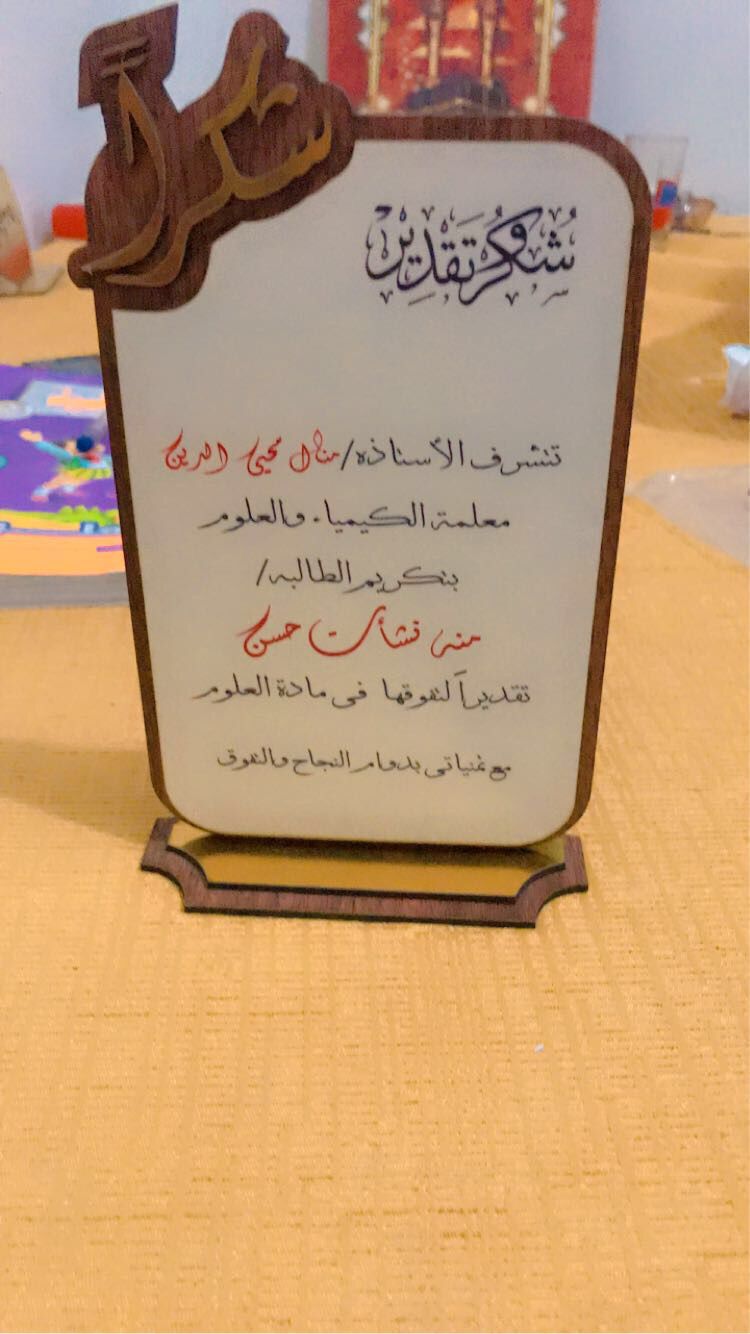 شكراً
شُكْرٌ وَتَقْدِير
تتشرف الأستاذه/منال محيى الدين
معلمة الكيمياء والعلوم
بتكريم الطالبه/
منه نشأت حسن
تقديراً لتفوقها فى مادة العلوم
مع تمنياتى بدوام النجاح والتفوق